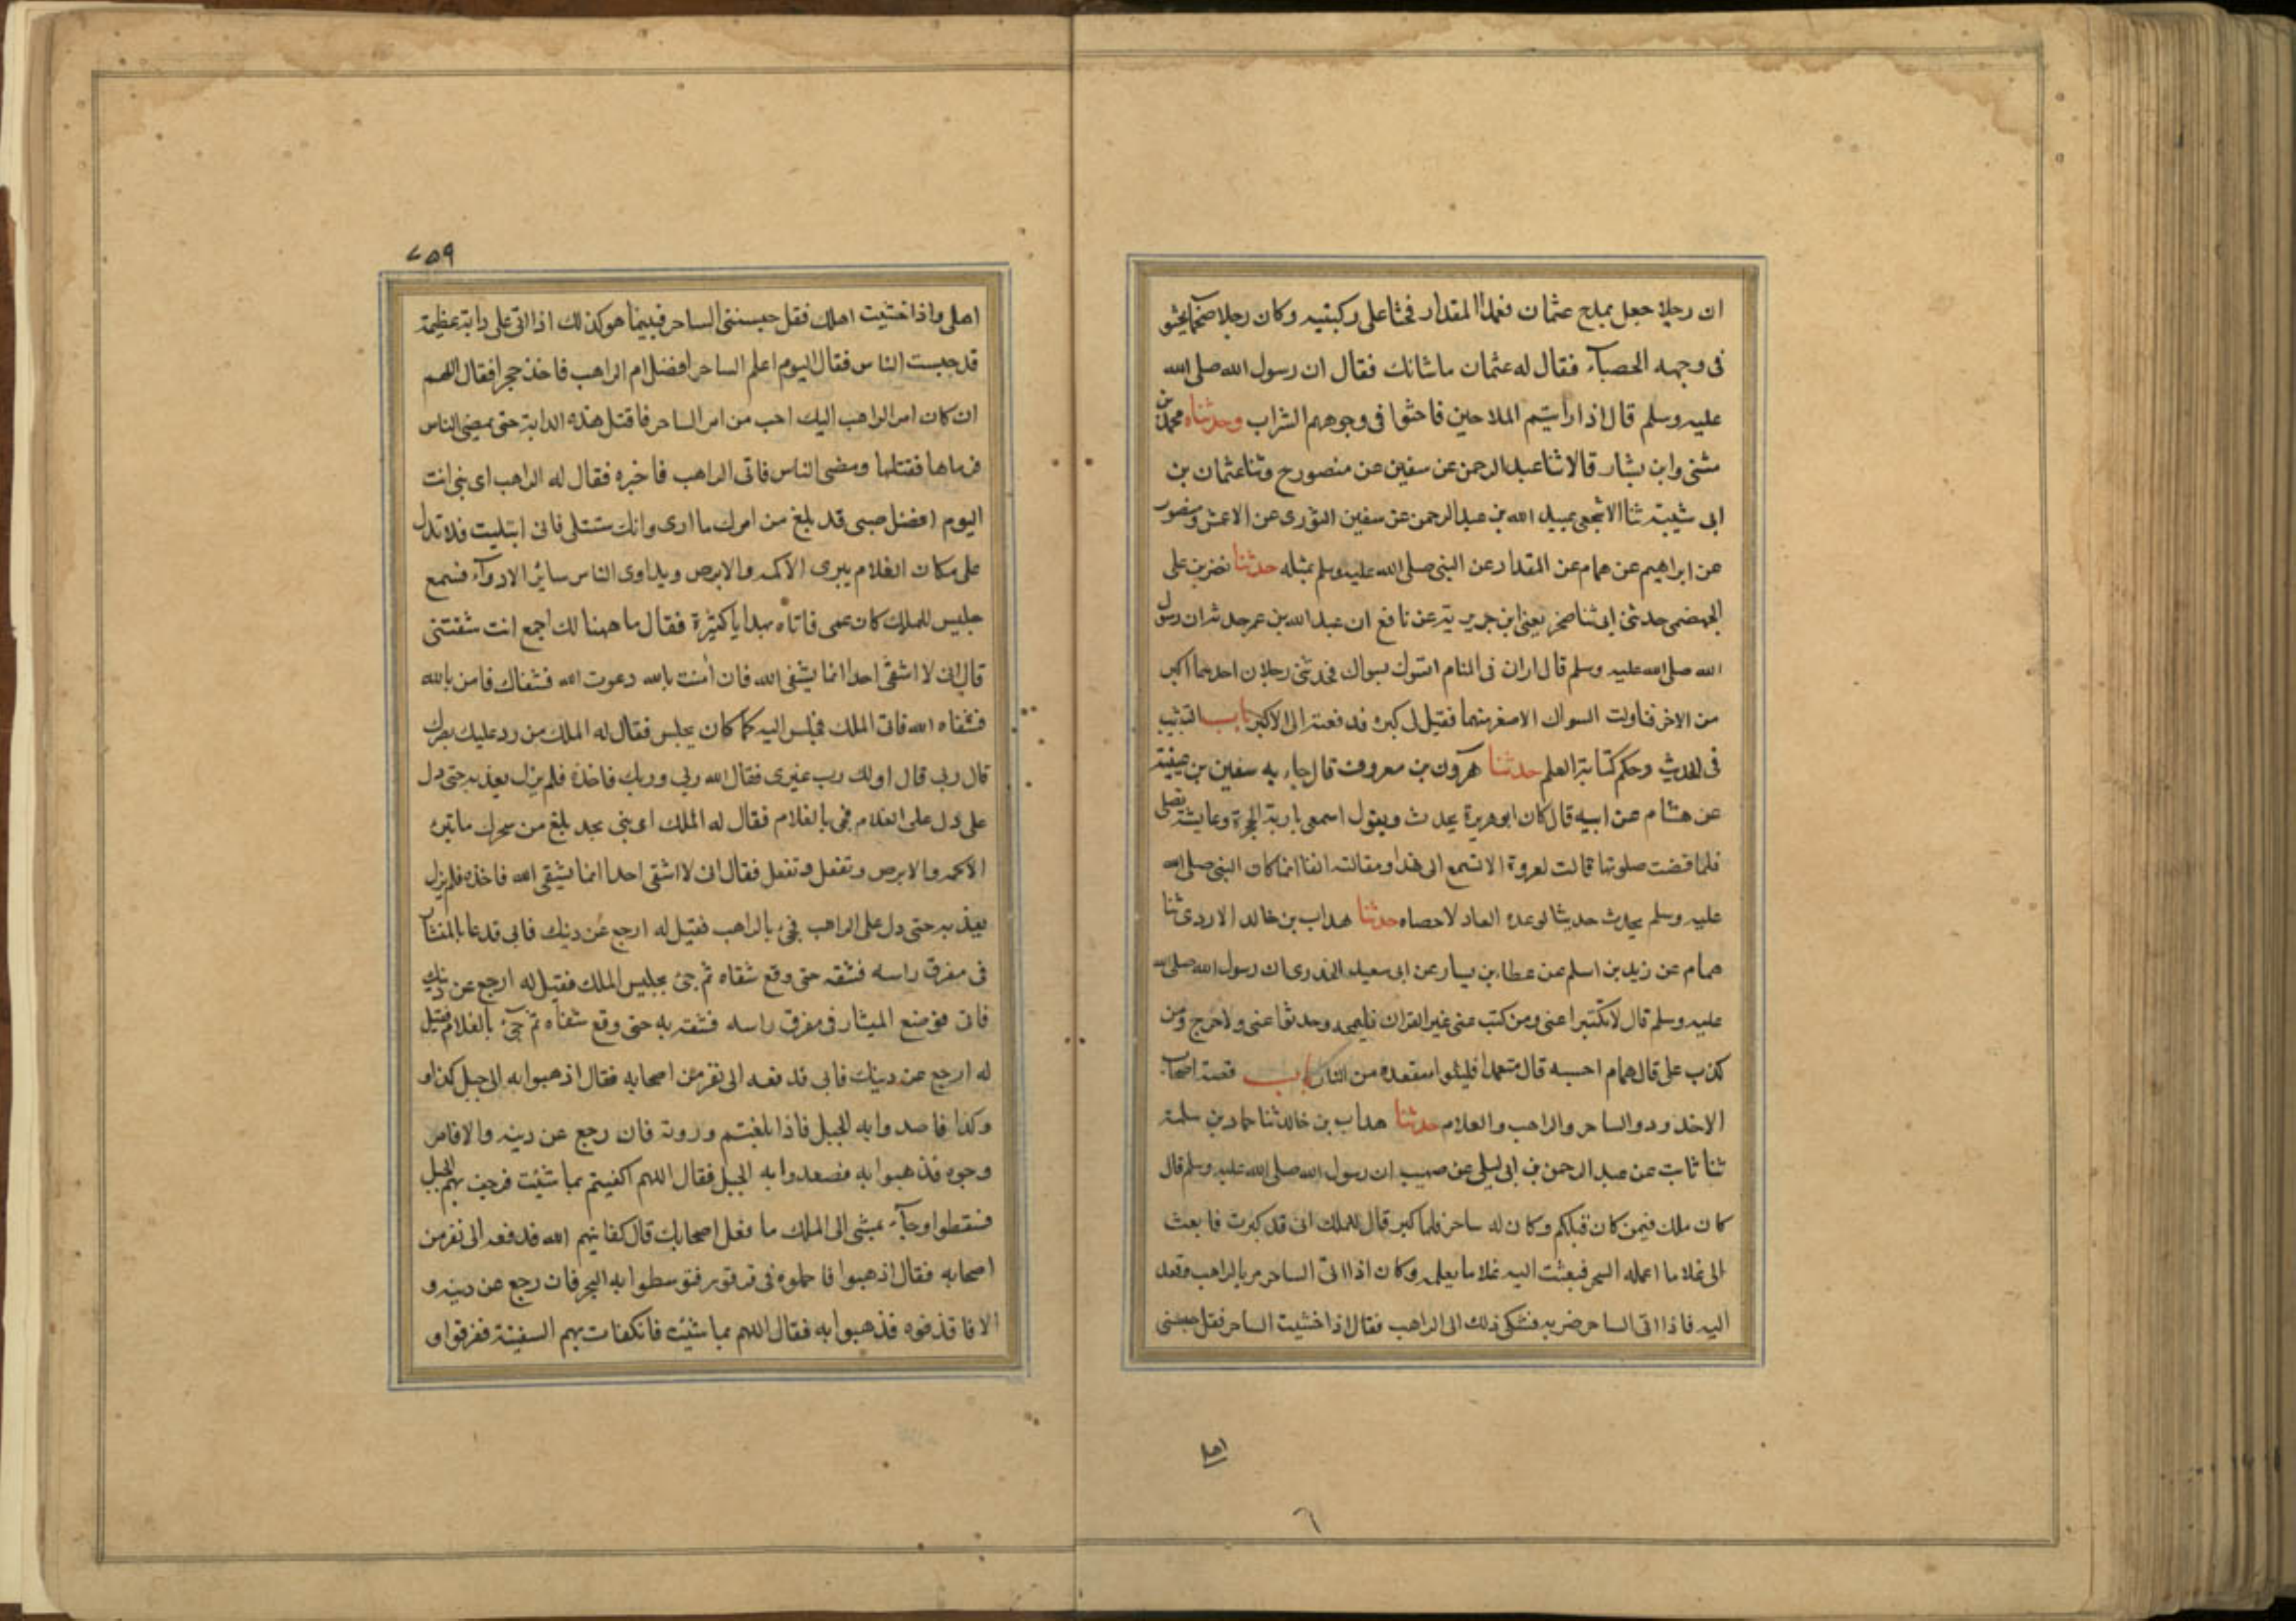 ان رجلا جعل يمدح عثمان فعمد المقداد فجثا على ركبتيه وكان رجلا ضخما يحثو
فى وجهه الحصباء فقال له عثمان ما شانك فقال ان رسول الله صلى الله
عليه وسلم قال اذا رايتم المداحين فاحثوا فى وجوههم التراب وحدثناه محمد بن
مثنى وابن بشار قالا ثنا عبد الرحمن عن سفين عن منصور ح وثنا عثمان بن
ابى شيبة ثنا الاشجعى عبيد الله بن عبد الرحمن عن سفين الثورى عن الاعمش ومنصور
عن ابراهيم عن همام عن المقداد عن النبى صلى الله عليه وسلم بمثله حدثنا نصر بن على
الجهضمى حدثنى ابى ثنا صخر يعنى ابن جويرية عن نافع ان عبد الله بن عمر حدثه ان رسول
الله صلى الله عليه وسلم قال ارانى فى المنام اتسوك بسواك فجذبنى رجلان احدهما اكبر
من الاخر فناولت السواك الاصغر منهما فقيل لى كبر فدفعته الى الاكبر باب التثبيت
فى الحديث وحكم كتابة العلم حدثنا هرون بن معروف قال جاء به سفين بن عيينة
عن هشام عن ابيه قال كان ابو هريرة يحدث ويقول اسمعى يا ربة الحجرة وعايشة تصلى
فلما قضت صلوتها قالت لعروة الا تسمع الى هذا ومقالته انفا انما كان النبى صلى الله
عليه وسلم يحدث حديثا لو عده العاد لاحصاه حدثنا هداب بن خالد الازدى ثنا
همام عن زيد بن اسلم عن عطاء بن يسار عن ابى سعيد الخدرى ان رسول الله صلى الله
عليه وسلم قال لا تكتبوا عنى ومن كتب عنى غير القران فليمحه وحدثوا عنى ولا حرج ومن
كذب على قال همام احسبه قال متعمدا فليتبوا مقعده من النار باب قصة اصحاب
الاخدود والساحر والراهب والغلام حدثنا هداب بن خالد ثنا حماد بن سلمة
ثنا ثابت عن عبد الرحمن بن ابى ليلى عن صهيب ان رسول الله صلى الله عليه وسلم قال
كان ملك فيمن كان قبلكم وكان له ساحر فلما كبر قال للملك انى قد كبرت فابعث
الى غلاما اعلمه السحر فبعثت اليه غلاما يعلمه وكان اذا اتى الساحر مر بالراهب وقعد
اليه فاذا اتى الساحر ضربه فشكى ذلك الى الراهب فقال اذا خشيت الساحر فقل حبسنى
اهلى
٦
٢٥٩
اهلى واذا خشيت اهلك فقل حبسنى الساحر فبينما هو كذلك اذ اتى على دابة عظيمة
قد حبست الناس فقال اليوم اعلم الساحر افضل ام الراهب فاخذ حجرا فقال اللهم
ان كان امر الراهب اليك احب من امر الساحر فاقتل هذه الدابة حتى يمضى الناس
فرماها فقتلها ومضى الناس فاتى الراهب فاخبره فقال له الراهب اى بنى انت
اليوم افضل منى قد بلغ من امرك ما ارى وانك ستبتلى فان ابتليت فلا تدل
على وكان الغلام يبرى الاكمه والابرص ويداوى الناس ساير الادواء فسمع
جليس للملك كان عمى فاتاه بهدايا كثيرة فقال ما ههنا لك اجمع انت شفتنى
قال انى لا اشفى احدا انما يشفى الله فان امنت بالله دعوت الله فشفاك فامن بالله
فشفاه الله فاتى الملك فجلس اليه كما كان يجلس فقال له الملك من رد عليك بصرك
قال ربى قال اولك رب غيرى فقال الله ربى وربك فاخذه فلم يزل يعذبه حتى دل
على دل على الغلام فجى بالغلام فقال له الملك اى بنى بلغ من سحرك ما تبرء
الاكمه والابرص وتفعل وتفعل فقال انى لا اشفى احدا انما يشفى الله فاخذه فلم يزل
يعذبه حتى دل على الراهب فجئ بالراهب فقيل له ارجع عن دينك فابى فدعا بالمنشار
فى مفرق راسه فشقه حتى وقع شقاه ثم جئ بجليس الملك فقيل له ارجع عن دينك
فابى فوضع الميشار فى مفرق راسه فشقه به حتى وقع شقاه ثم جئ بالغلام فقيل
له ارجع عن دينك فابى فدفعه الى نفر من اصحابه فقال اذهبوا به الى جبل كذا و
وكذا فاصعدوا به الجبل فاذا بلغتم وروته فان رجع عن دينه والا فاطر
وحوه فذهبوا به فصعدوا به الجبل فقال اللهم اكفنيهم بما شئت فرجف بهم الجبل
فسقطوا وجاء يمشى الى الملك ما فعل اصحابك قال كفانيهم الله فدفعه الى نفر من
اصحابه فقال اذهبوا فاحملوه فى قرقور فتوسطوا به البحر فان رجع عن دينه و
الا فاقذفوه فذهبوا به فقال اللهم بما شئت فانكفات بهم السفينة فغرقوا و